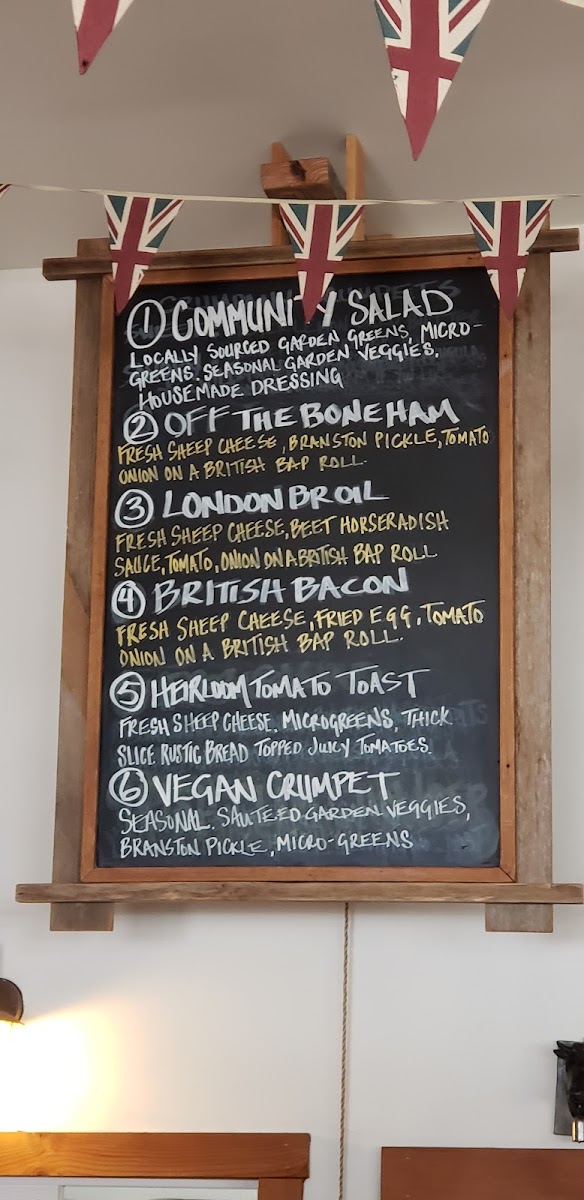 ① COMMUNITY SALAD
LOCALLY SOURCED GARDEN GREENS, MICRO-
GREENS. SEASONAL GARDEN VEGGIES.
HOUSEMADE DRESSING
② OFF THE BONE HAM
FRESH SHEEP CHEESE, BRANSTON PICKLE, TOMATO
ONION ON A BRITISH BAP ROLL.
③ LONDON BROIL
FRESH SHEEP CHEESE, BEET HORSERADISH
SAUCE, TOMATO, ONION ON A BRITISH BAP ROLL
④ BRITISH BACON
FRESH SHEEP CHEESE, FRIED EGG, TOMATO
ONION ON A BRITISH BAP ROLL.
⑤ HEIRLOOM TOMATO TOAST
FRESH SHEEP CHEESE, MICROGREENS, THICK
SLICE RUSTIC BREAD TOPPED JUICY TOMATOES.
⑥ VEGAN CRUMPET
SEASONAL. SAUTEED GARDEN VEGGIES,
BRANSTON PICKLE, MICRO-GREENS